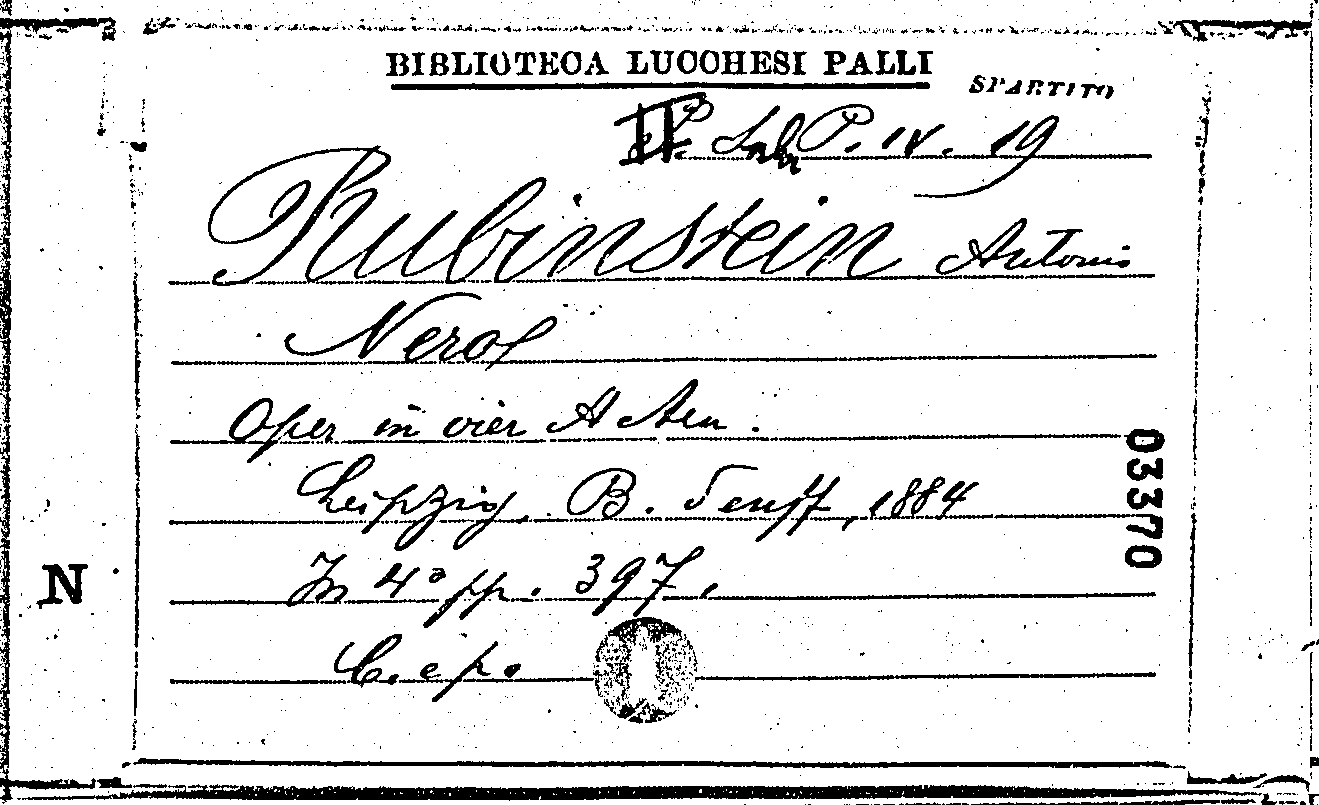 BIBLIOTECA LUCCHESI PALLI
SPARTITO
II P. IV. 19
Rubinstein Antonio
Nerol
Oper in vier Akten.
Leipzig, B. Senff, 1884
03370
In 4° pp. 397.
N
C. e p.